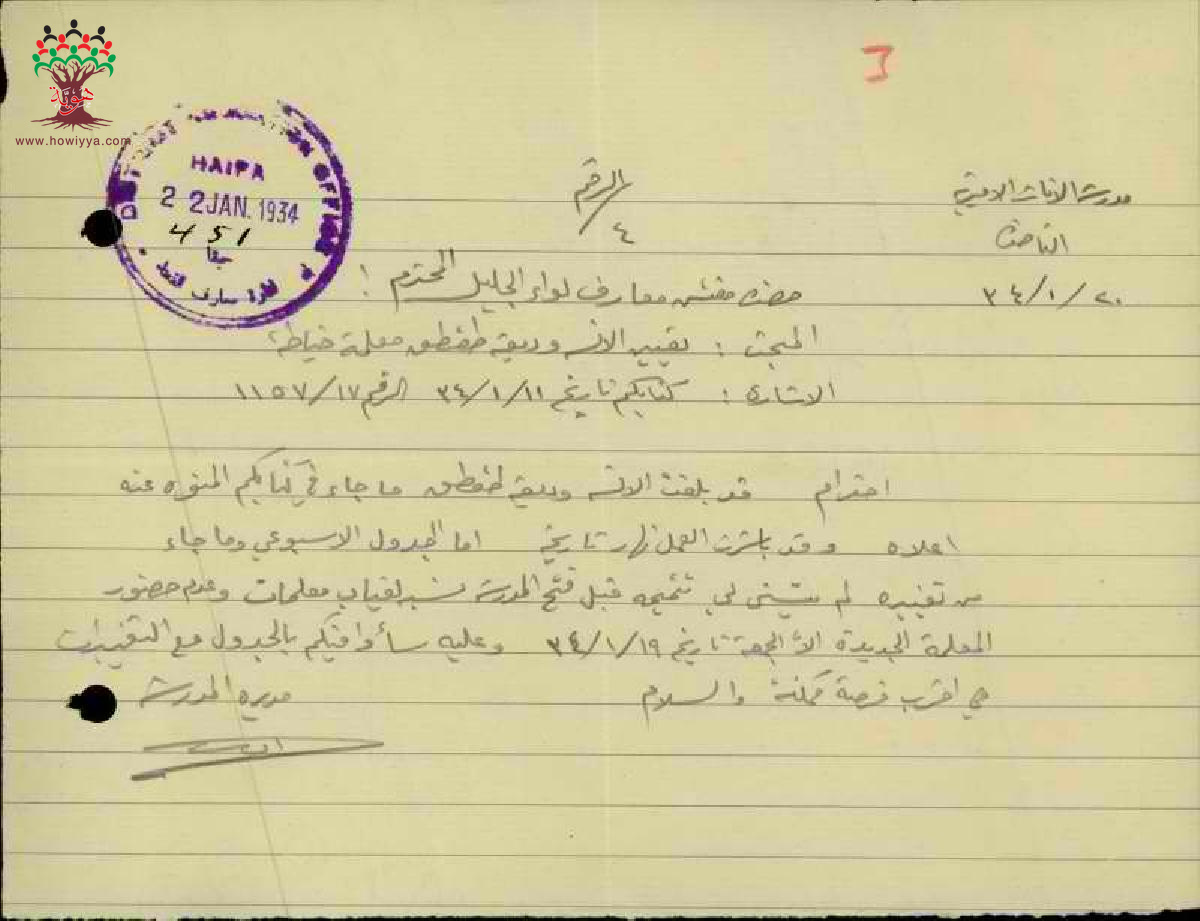 www.howiyya.com
DISTRICT EDUCATION OFFICE
HAIFA
22 JAN. 1934
451
حيفا
مدرسة الاناث الاميرية
الناصرة
٢٠/١/٣٤
الرقم / ٤
حضرة مفتش معارف لواء الجليل المحترم !
المبحث : تعيين الانسه وديعه طقطق معلمة خياطة
الاشارة : كتابكم تاريخ ٣٤/١/١١ الرقم ١١٥٧/١٧
احترام قد بلغت الانسه وديعه طقطق ما جاء في كتابكم المنوه عنه
اعلاه وقد باشرت العمل نهار تاريخ اما الجدول الاسبوعي وما جاء
من تغييره لم يتسنى لي تتميمه قبل فتح المدرسة بسبب لغياب معلمات وعدم حضور
المعلمة الجديدة الا الجمعة تاريخ ٣٤/١/١٩ وعليه سأوافيكم بالجدول مع التغييرات
في اقرب فرصة ممكنة والسلام
مديرة المدرسة